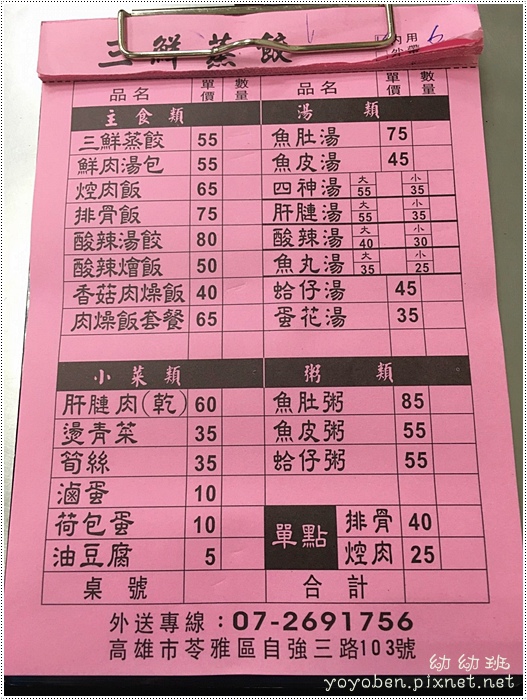 三鮮蒸餃
內用 外帶 6
品名 單價 數量 品名 單價 數量
主食類 湯類
三鮮蒸餃 55 魚肚湯 75
鮮肉湯包 55 魚皮湯 45
焢肉飯 65 四神湯 大55 小35
排骨飯 75 肝腱湯 大55 小35
酸辣湯餃 80 酸辣湯 大40 小30
酸辣燴飯 50 魚丸湯 大35 小25
香菇肉燥飯 40 蛤仔湯 45
肉燥飯套餐 65 蛋花湯 35
小菜類 粥類
肝腱肉(乾) 60 魚肚粥 85
燙青菜 35 魚皮粥 55
筍絲 35 蛤仔粥 55
滷蛋 10
荷包蛋 10 單點 排骨 40
油豆腐 5 焢肉 25
桌號 合計
外送專線：07-2691756
高雄市苓雅區自強三路103號
幼幼班
yoyoben.pixnet.net